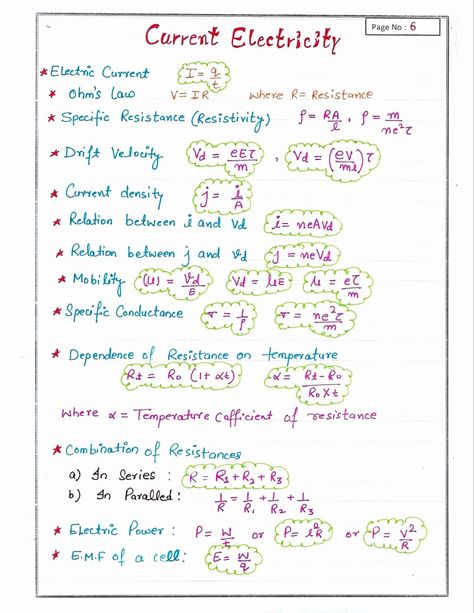 Page No : 6
Current Electricity
★ Electric Current I = q/t
★ Ohm's Law V = IR where R = Resistance
★ Specific Resistance (Resistivity) ρ = RA/l , ρ = m/ne²τ
★ Drift Velocity Vd = eEτ/m , Vd = (eV/ml)τ
★ Current density j = i/A
★ Relation between i and Vd i = neAVd
★ Relation between j and Vd j = neVd
★ Mobility (μ) = Vd/E Vd = μE μ = eτ/m
★ Specific Conductance σ = 1/ρ σ = ne²τ/m
★ Dependence of Resistance on temperature
Rt = Ro (1+αt) α = Rt - Ro/Ro×t
where α = Temperature Cafficient of resistance
★ Combination of Resistances
a) In Series : R = R1 + R2 + R3
b) In Paralled : 1/R = 1/R1 + 1/R2 + 1/R3
★ Electric Power : P = W/t or P = i²R or P = V²/R
★ E.M.F of a cell: E = W/q